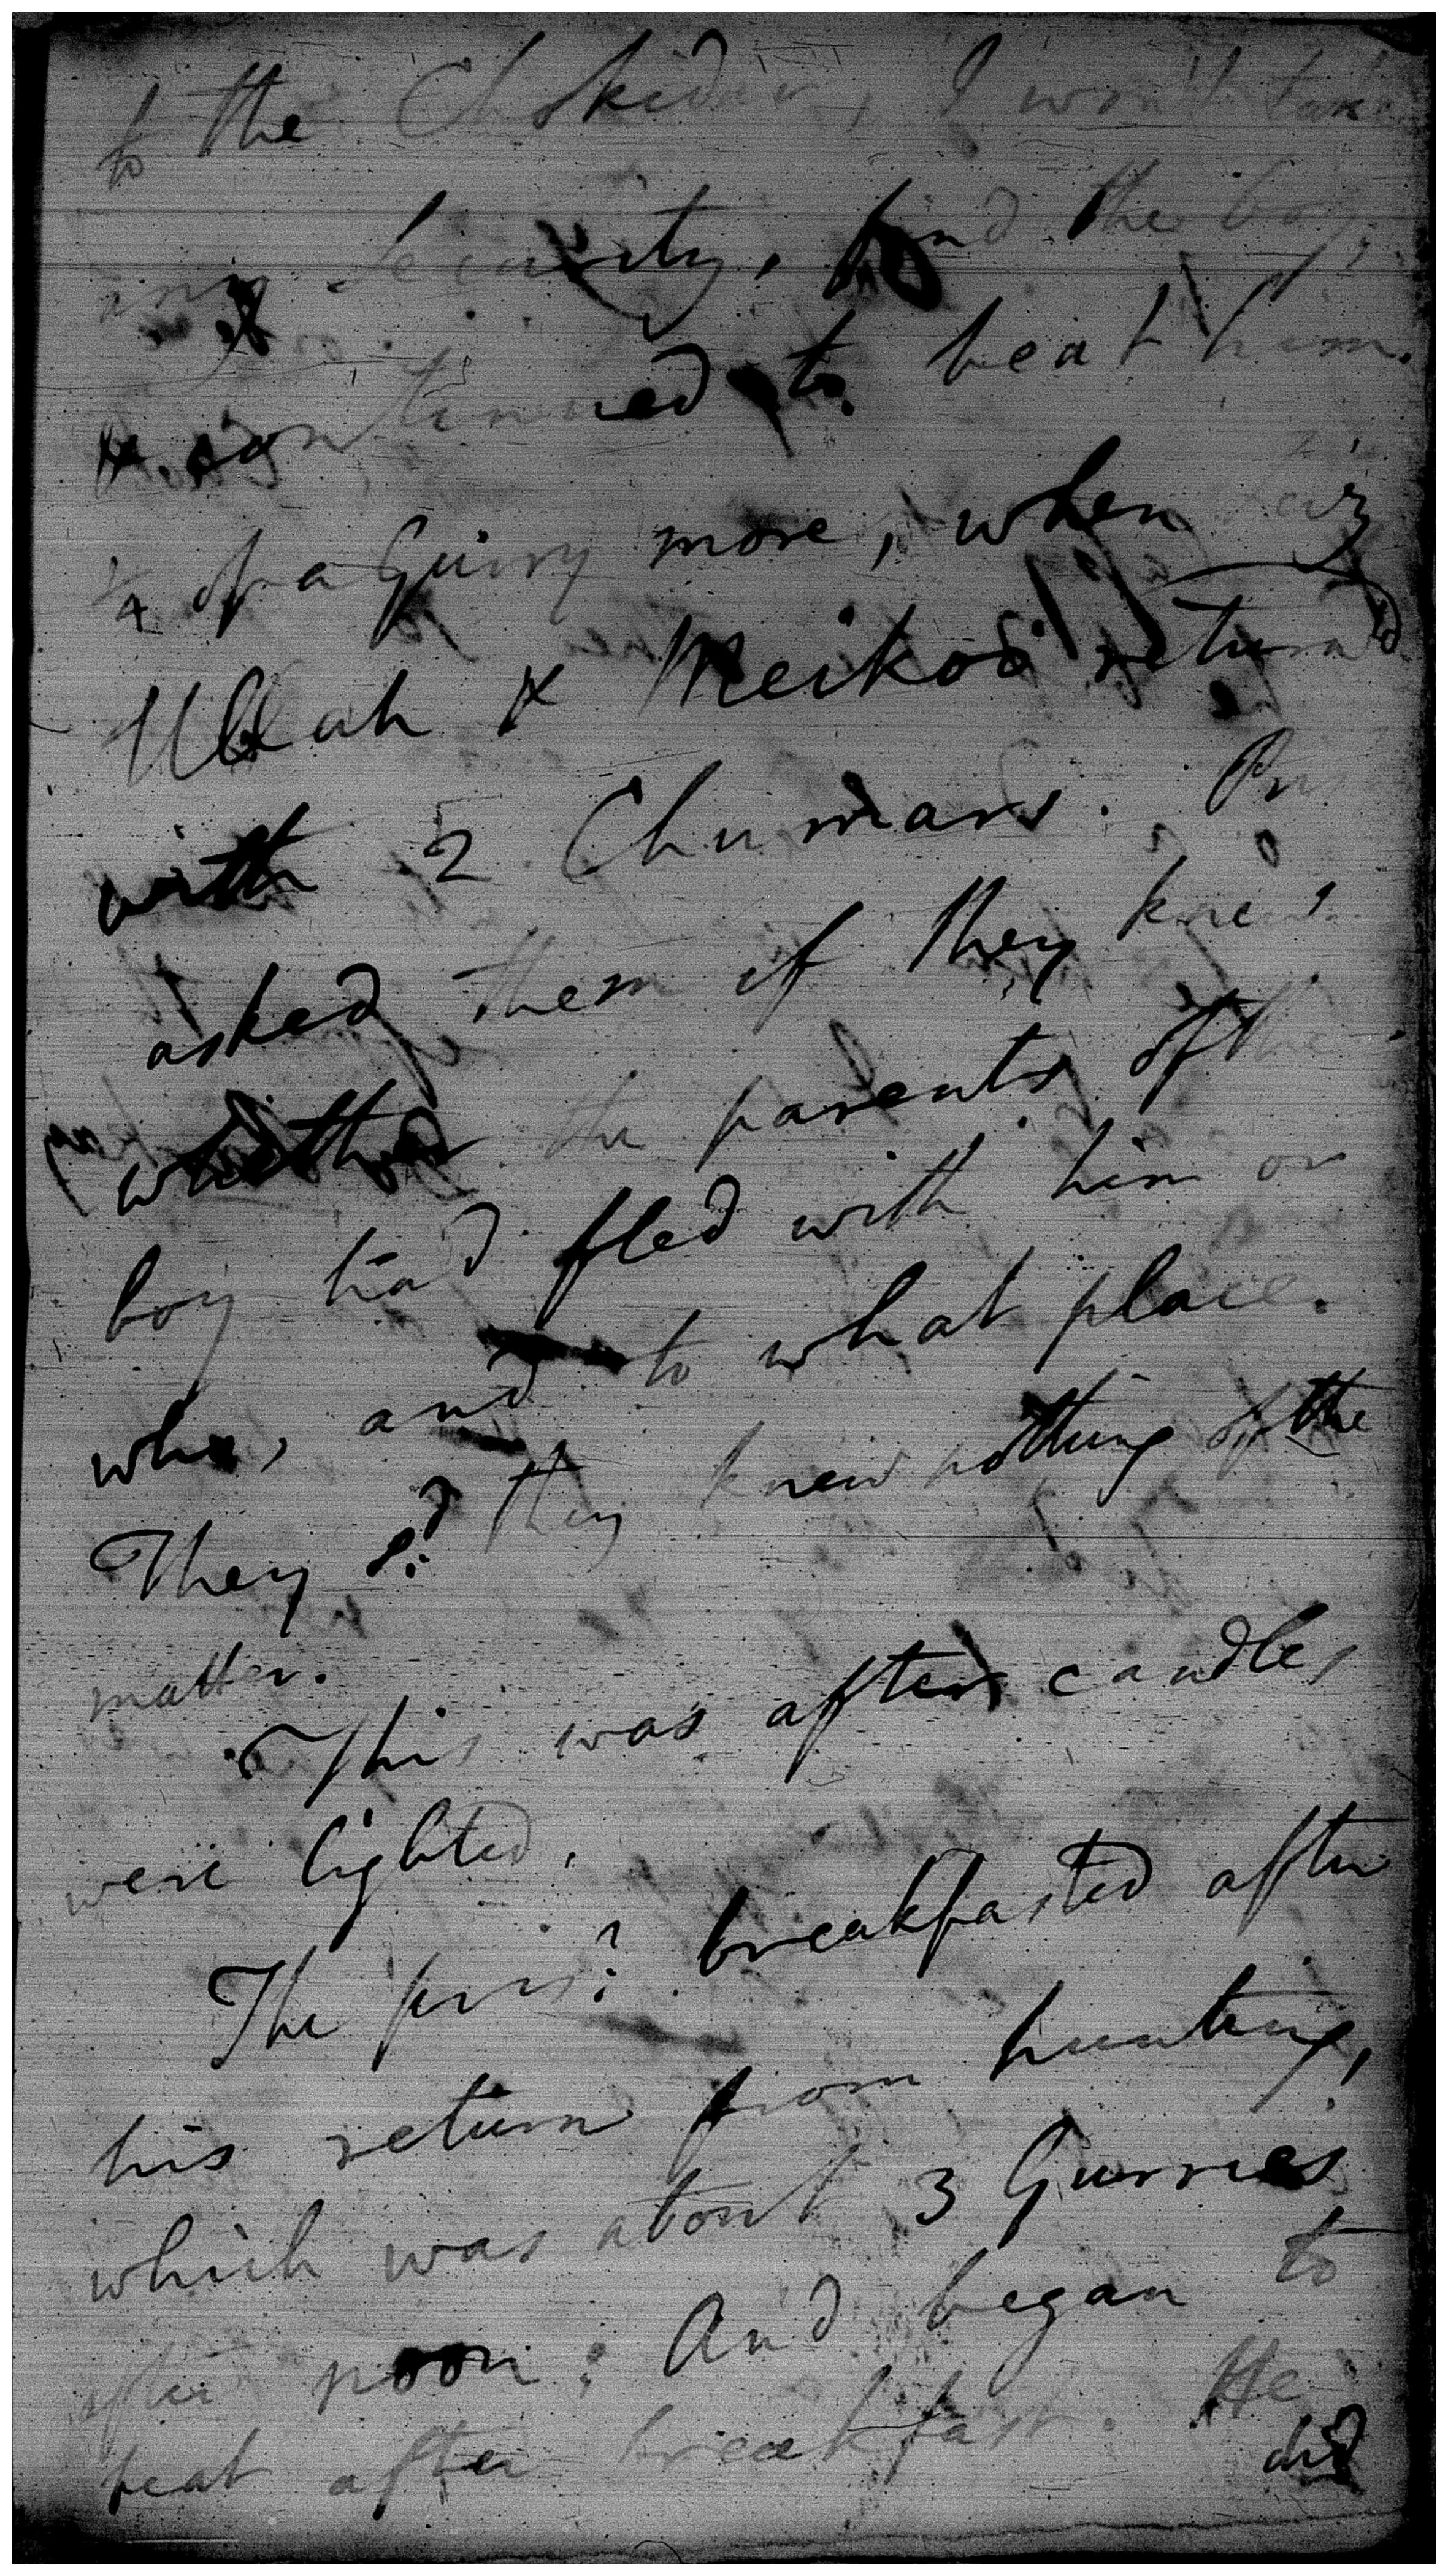 to the Chokidar, I won't take
any Security, find the boy,
& continued to beat him.
¼ of a Gurry more, when Faiz
Ullah & Meikoo returnd
with 2 Chumars. Pr
asked them if they knew
whither the parents of the
boy had fled with him or
who, and to what place.
They sd they knew nothing of the
matter.
This was after candles
were lighted.
The prisr breakfasted after
his return from hunting,
which was about 3 Gurries
after noon; And began to
beat after breakfast. He
did